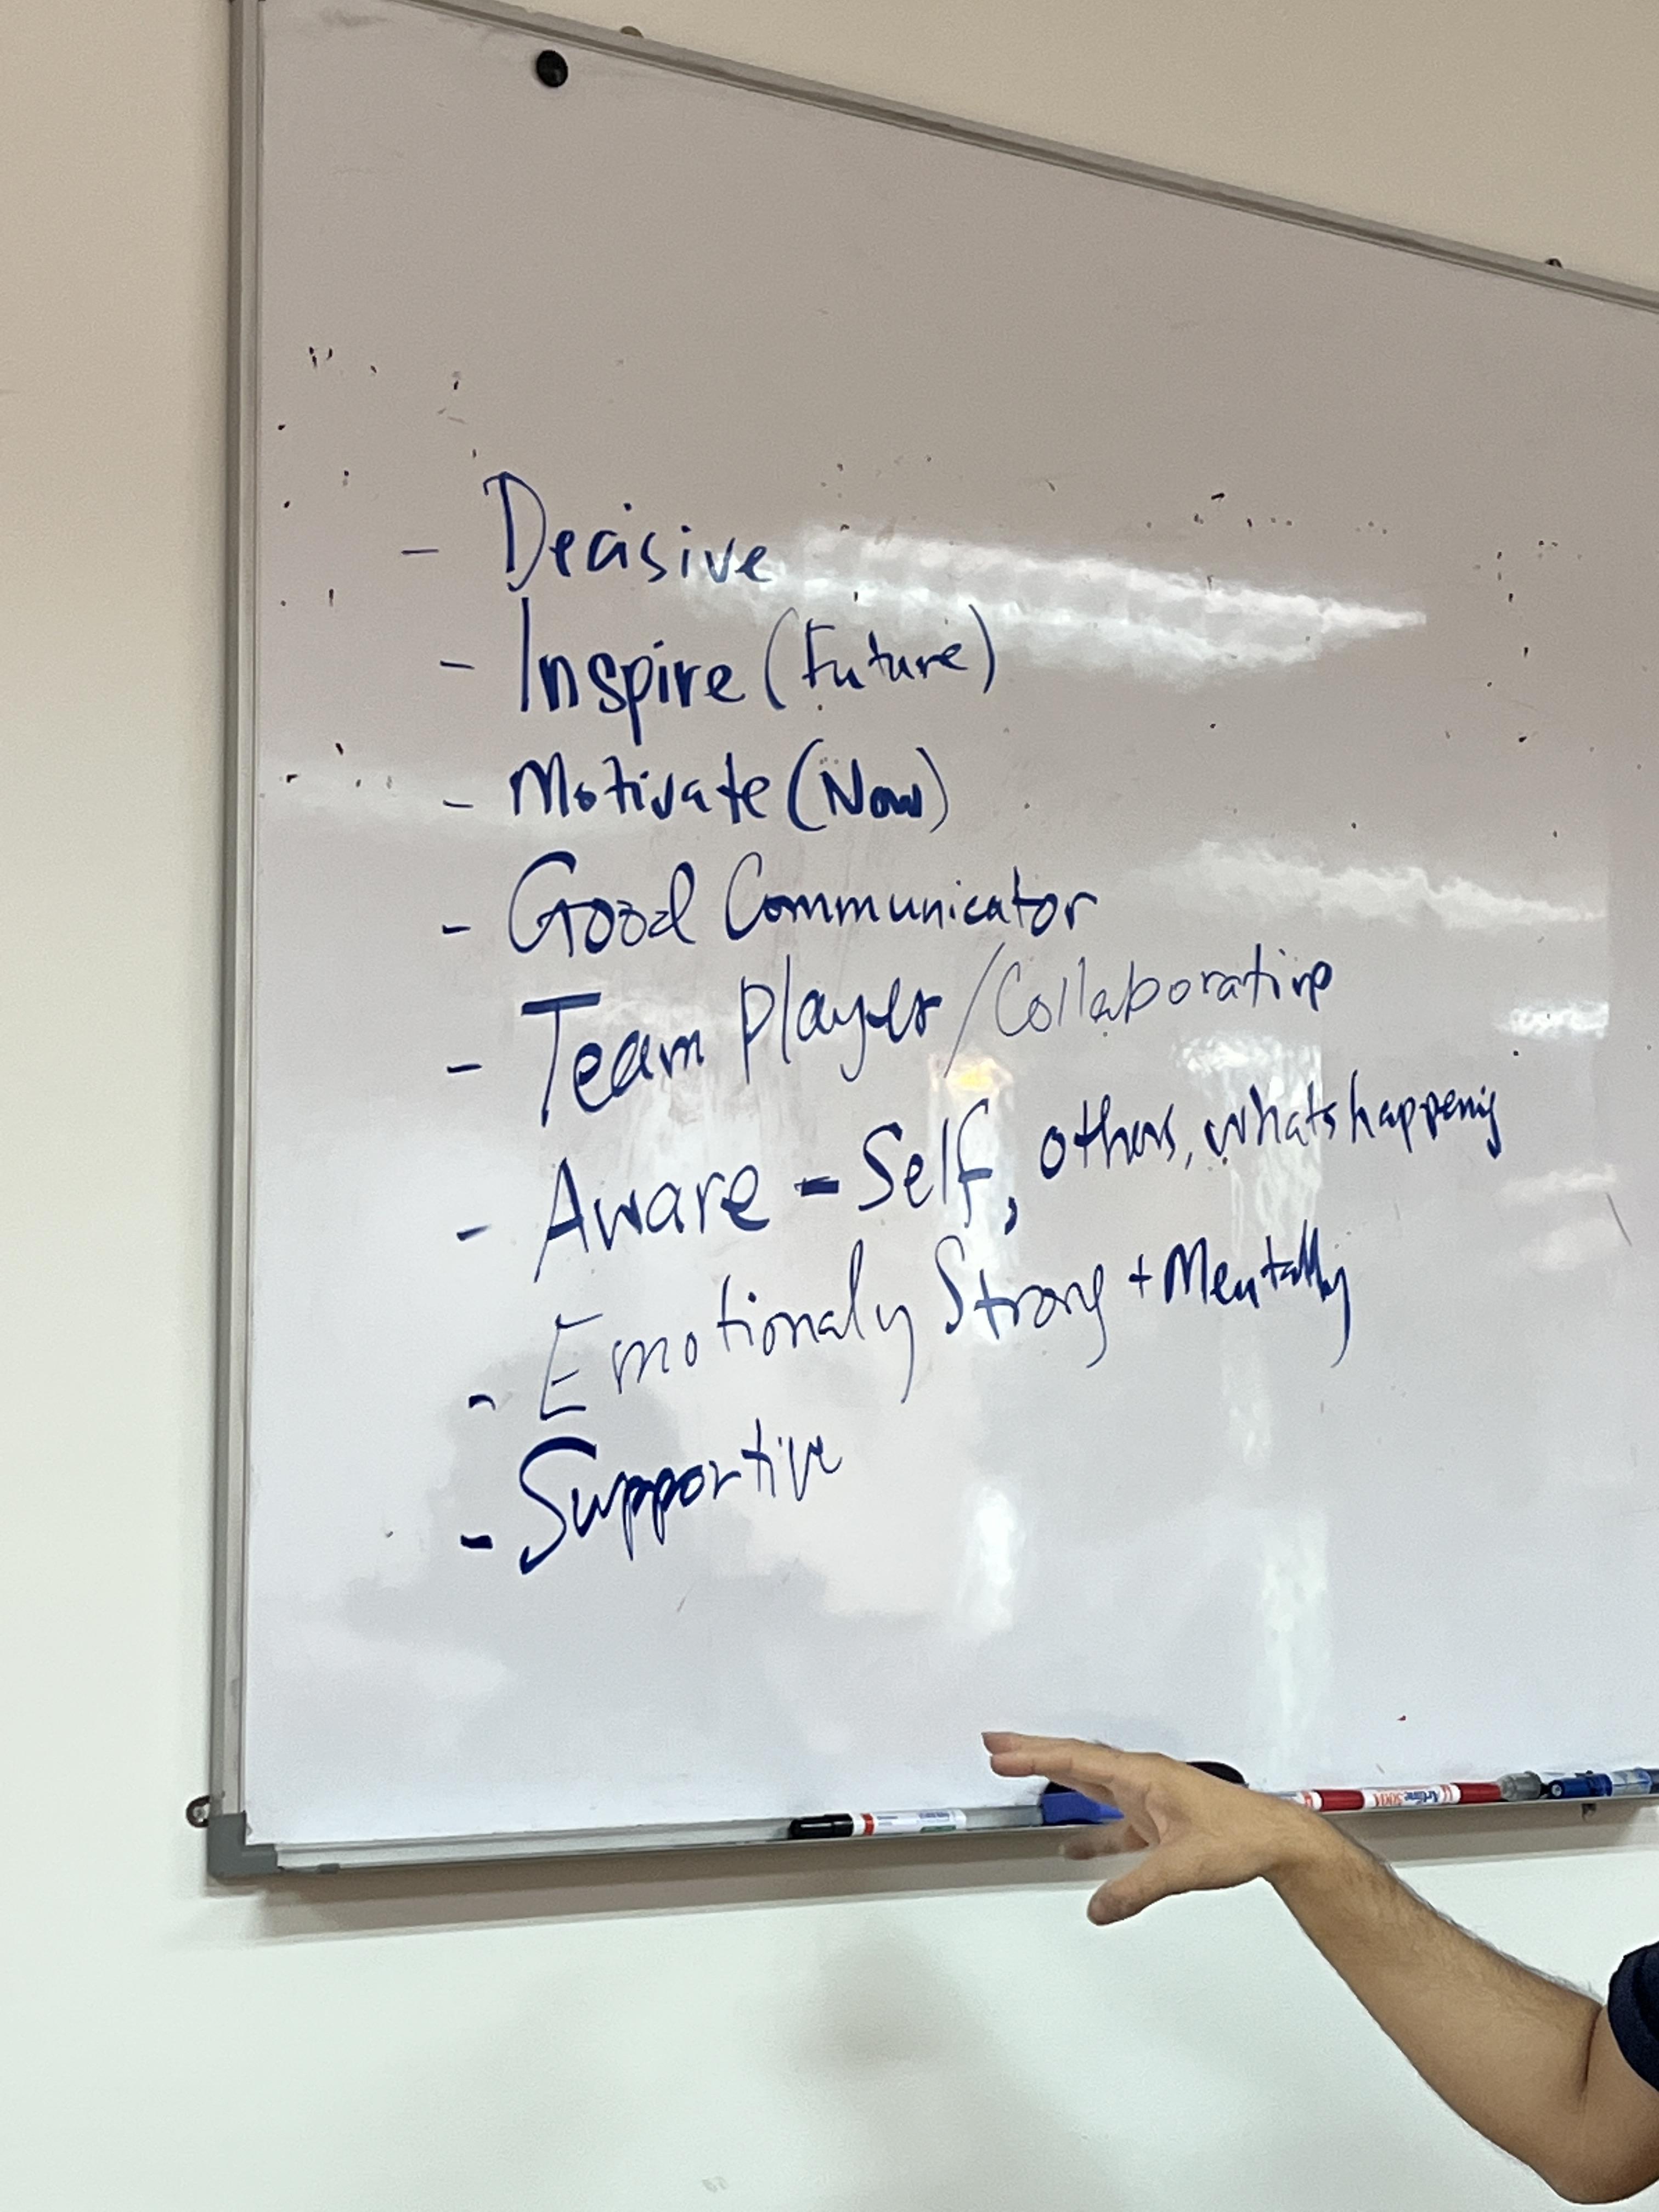 - Decisive
- Inspire (Future)
- Motivate (Now)
- Good Communicator
- Team player / Collaborative
- Aware - Self, others, whats happening
- Emotionaly Strong + Mentally
- Supportive
Artline 500A